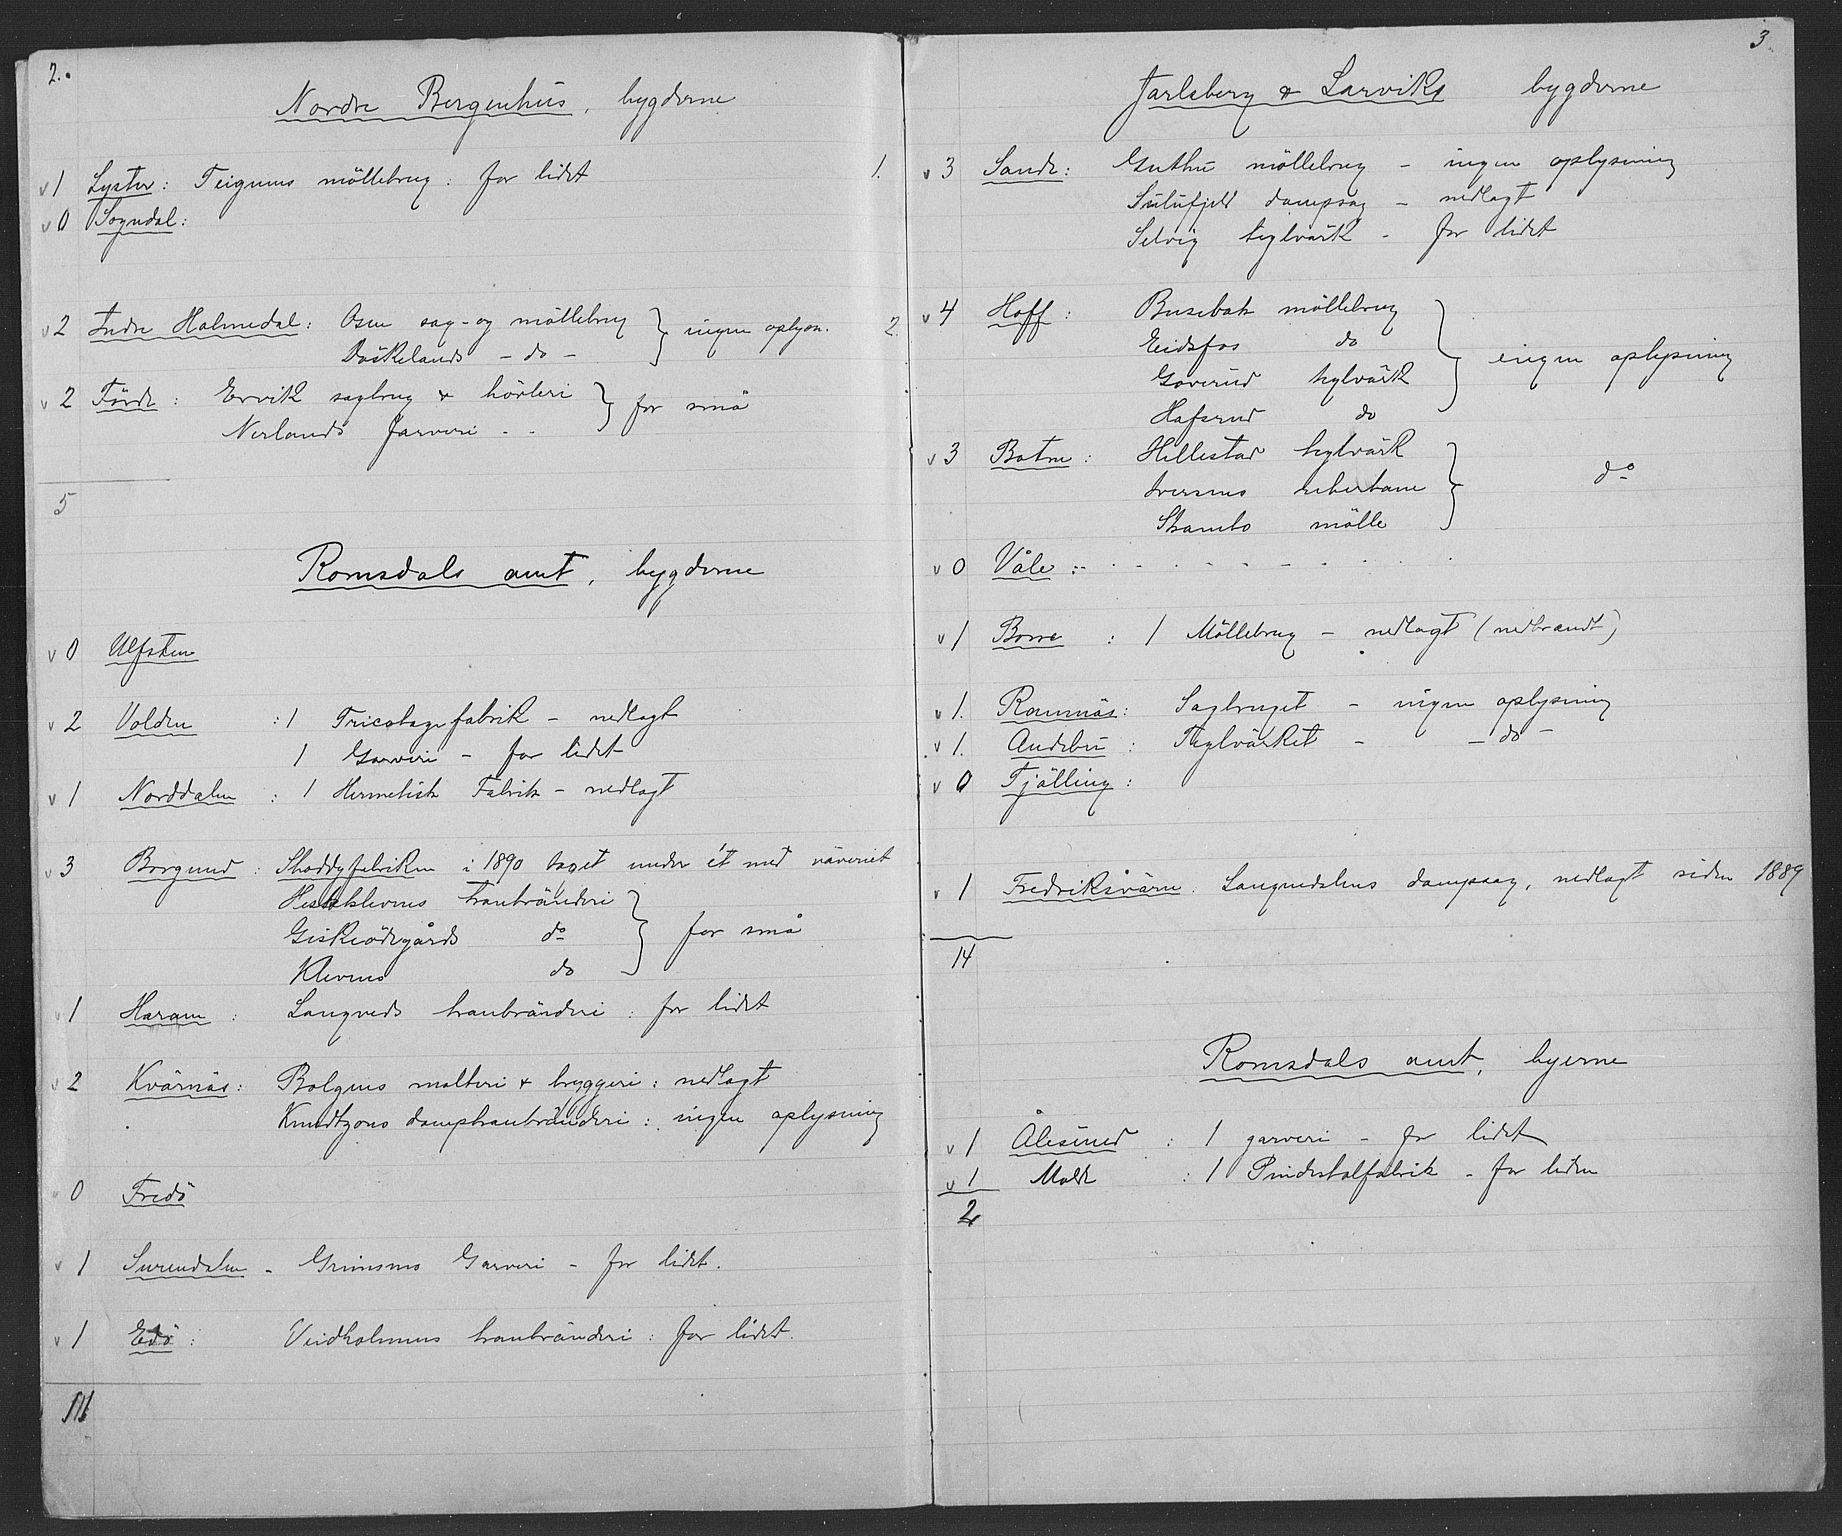 2.
Nordre Bergenhus, bygderne
v 1 Lyster: Teigums möllebrug: for lidet
v 0 Sogndal:
v 2 Indre Holmedal: Osen sag- og möllebrug } ingen oplysn.
— do —
v 2 Förde: Ervik sagbrug & hövleri } for små
Nerlands farveri - -
5
Romsdals amt, bygderne
v 0 Ulfsten
v 2 Volden : 1 Tricotagefabrik — nedlagt
1 Garveri — for lidet
v 1 Norddalen : 1 Hermetisk Fabrik — nedlagt
v 3 Borgund : Shoddyfabriken i 1890 taget under ét med väveriet
tranbränderi } for små
Giskeödegårds do
Klevens do
v 1 Haram : Langveds tranbränderi : for lidet
v 2 Kvärnäs: Bolgens malteri & bryggeri : nedlagt
Knudtzons damptranbränderi : ingen oplysning
v 0 Fredö
v 1 Surendalen — Grimsmo Garveri — for lidet.
v 1 Edö : Veidholmens tranbränderi : for lidet.
11
3.
Jarlsberg & Larviks bygderne
1. v 3 Sande: Guthu möllebrug — ingen oplysning
dampsag — nedlagt
Selvig teglvärk — for lidet
2. v 4 Hoff : Busebak möllebrug } ingen oplysning
Eidsfos do
Goverud teglvärk
Hafsrud do
v 3 Botne : Hillestad teglvärk } do
Iversens reberbane
Skamlo mölle
v 0 Våle :- - - - - - - -
v 1 Borre : 1 Möllebrug — nedlagt (nedbrændt)
v 1. Ramnäs: Sagbruget — ingen oplysning
v 1. Andebu : Teglvärket — — do —
v 0 Tjölling :
v 1 Fredriksvärn : Langnedalens dampsag, nedlagt siden 1889
14
Romsdals amt, byerne
v 1 Ålesund : 1 garveri — for lidet
v 1 Molde : 1 Pindestolfabrik — for liden
2